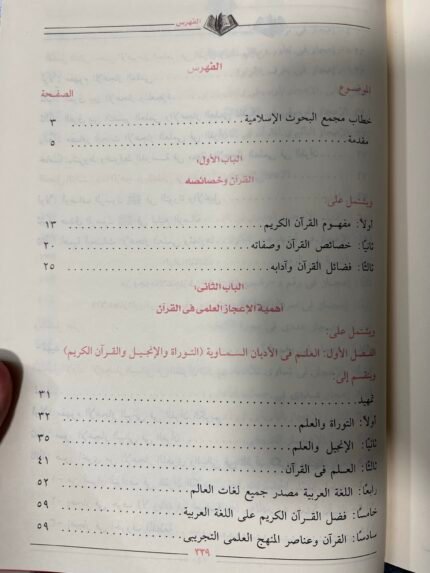 الفهرس
الفهرس
الموضوع الصفحة
خطاب مجمع البحوث الإسلامية ٣
مقدمة ٥
الباب الأول:
القرآن وخصائصه
ويشتمل على:
أولاً: مفهوم القرآن الكريم ١٣
ثانيًا: خصائص القرآن وصفاته ٢٠
ثالثًا: فضائل القرآن وآدابه ٢٥
الباب الثانى:
أهمية الإعجاز العلمى فى القرآن
ويشتمل على:
الفصل الأول: العلم فى الأديان السماوية (التوراة والإنجيل والقرآن الكريم)
وينقسم إلى:
تمهيد ٣١
أولاً: التوراة والعلم ٣٢
ثانيًا: الإنجيل والعلم ٣٥
ثالثًا: العلم فى القرآن ٤١
رابعًا: اللغة العربية مصدر جميع لغات العالم ٥٢
خامسًا: فضل القرآن الكريم على اللغة العربية ٥٩
سادسًا: القرآن وعناصر المنهج العلمى التجريبى ٥٩
٣٣٩